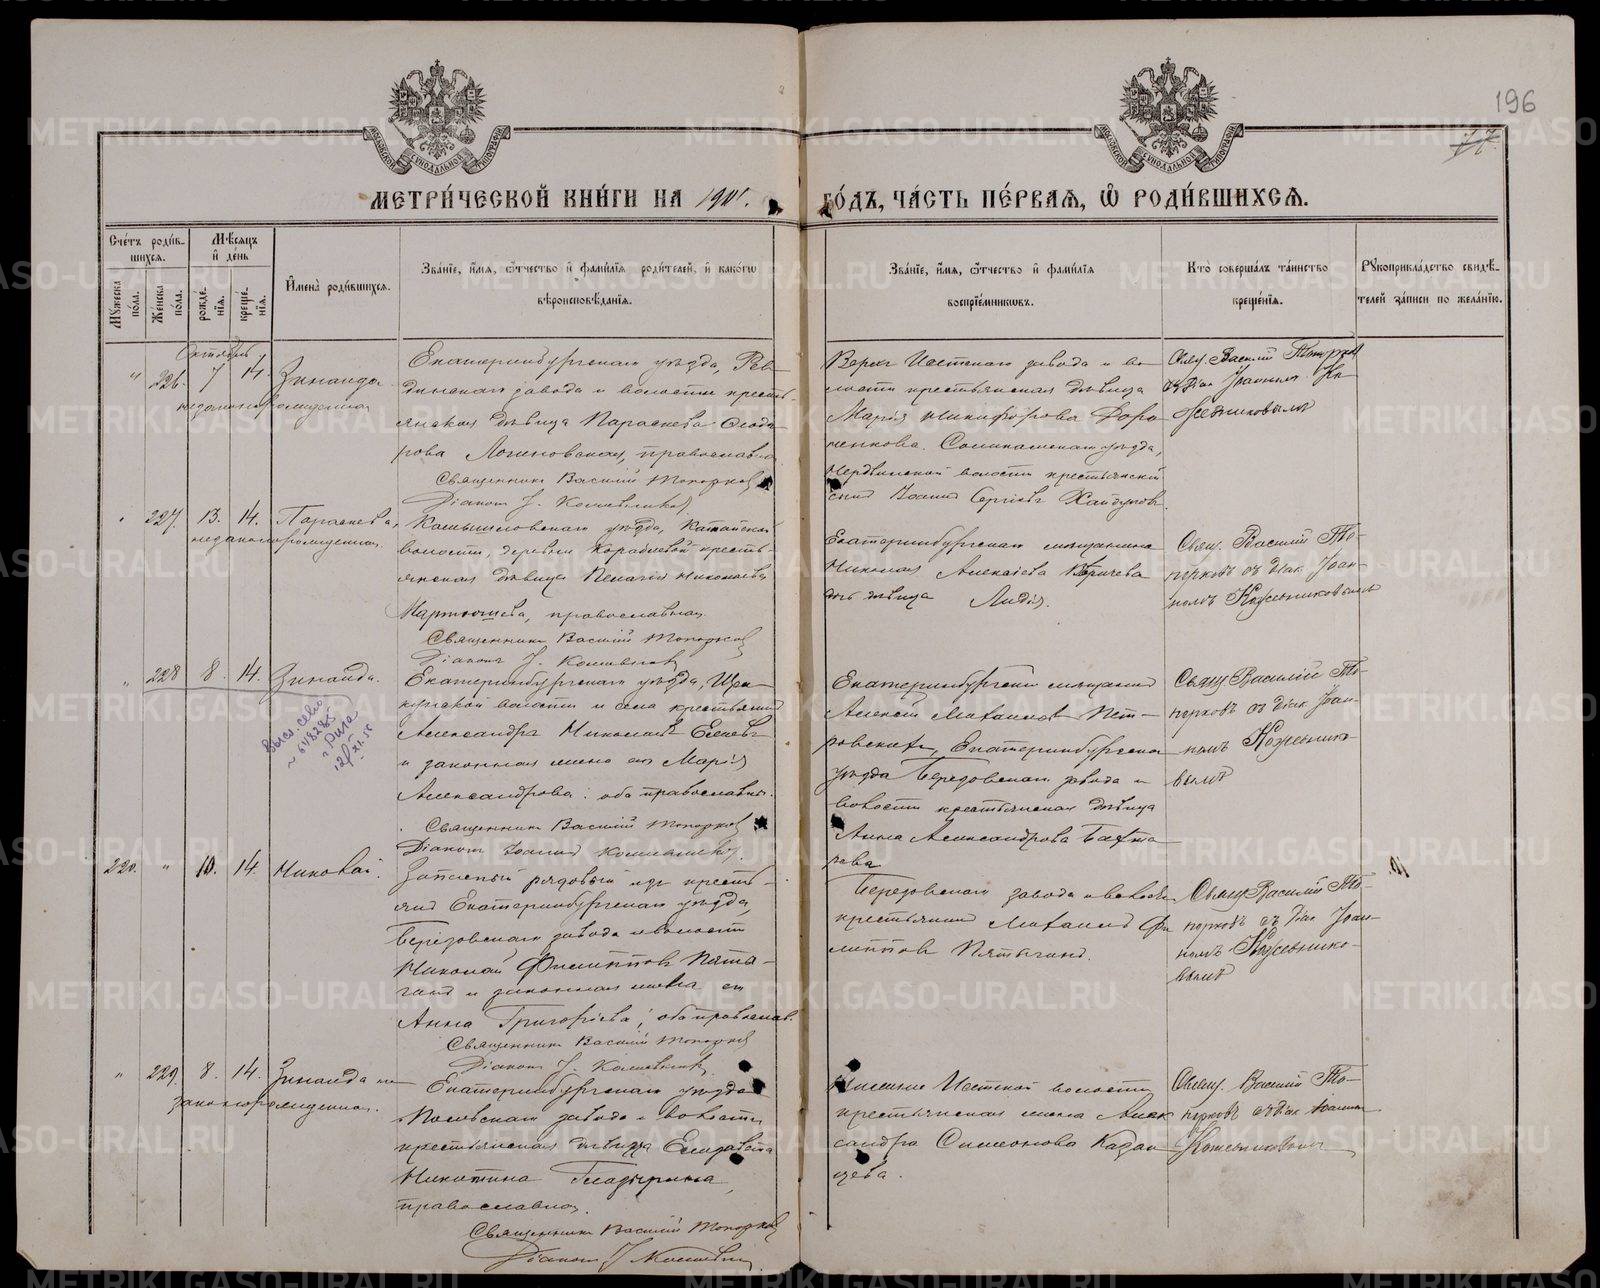 196
77.
МОСКОВСКОЙ СУНОДАЛЬНОЙ ТИПОГРАФІИ
МОСКОВСКОЙ СУНОДАЛЬНОЙ ТИПОГРАФІИ
МЕТРИ́ЧЕСКОЙ КНИ́ГИ НА 1901. ГО́ДЪ, ЧА́СТЬ ПЕ́РВАѦ, Ѡ҆ РОДИ́ВШИХСѦ.
Сче́тъ роди́в-
шихся.
Мѣсяцъ
и҆ де́нь
Мꙋжеска
по́ла.
Же́нска
по́ла.
рожде́-
нїѧ.
креще́-
нїѧ.
И҆мена̀ роди́вшихся.
Зва́нїе, и҆́мѧ, ѻ҆́тчество и҆ фами́лїѧ роди́телей, и҆ како́гѡ
вѣроисповѣ́данїѧ.
Зва́нїе, и҆́мѧ, ѻ҆́тчество и҆ фами́лїѧ
воспрїе́мникѡвъ.
Кто̀ соверша́лъ та́инство
креще́нїѧ.
Рꙋкоприкла́дство свидѣ́-
телей за́писи по жела́нїю.
Октябрь
226. 7 14. Зинаида
незаконорожденная
Екатеринбургскаго уѣзда, Рев-
динскаго завода и волости кресть-
янская дѣвица Параскева Ѳеодо-
рова Логиновская, православная
Священникъ Василій Топорковъ
Діаконъ І. Кожевниковъ
Верхъ Исетскаго завода и во-
лости крестьянская дѣвица
Марія Никифорова Доро-
ненкова. Соликамскаго уѣзда,
волости крестьянскій
сынъ Іоаннъ Сергіевъ Хайдуковъ.
Свящ. Василій Топорков
съ Діак. Іоанномъ Ко-
жевниковымъ
227. 13. 14. Параскева,
незаконорожденная
Камышловскаго уѣзда, Катайской
волости, деревни Кораблевой кресть-
янская дѣвица Пелагія Николаева
Мартюшева, православная.
Священникъ Василій Топорковъ
Діаконъ І. Кожевниковъ
Екатеринбургскаго мѣщанина
Николая Алексіева
дочь дѣвица Лидія.
Свящ. Василій То-
порковъ съ діак. Іоан-
номъ Кожевниковымъ
228 8. 14. Зинаида.
Екатеринбургскаго уѣзда,
волости и села крестьянинъ
Александръ Николаевъ Елеевъ
и законная жена его Марія
Александрова: оба православны.
Священникъ Василій Топорковъ
Діаконъ Іоаннъ Кожевниковъ.
Екатеринбургскій мѣщанинъ
Алексій Михаиловъ Пет-
ровскихъ, Екатеринбургскаго
уѣзда Березовскаго завода и
волости крестьянская дѣвица
Анна Александрова
рова
Свящ. Василій То-
порковъ съ діак. Іоан-
номъ Кожевнико-
вымъ
Выс. св-во
~ 618285
г. Рига
12/XI-55
220. 10. 14. Николай.
Запасный рядовый изъ кресть-
янъ Екатеринбургскаго уѣзда,
Березовскаго завода и волости
Николай Филипповъ Пяты-
гинъ и законная жена его
Анна Григоріева; оба православ.
Священникъ Василій Топорковъ
Діаконъ І. Кожевниковъ.
Березовскаго завода и волости
крестьянинъ Михаилъ Фи-
липповъ Пятыгинъ.
Свящ. Василій То-
порковъ съ діак. Іоан-
номъ Кожевнико-
вымъ
229. 8. 14. Зинаида не-
законорожденная.
Екатеринбургскаго уѣзда
Полевскаго завода и волости
крестьянская дѣвица Елизавета
Никитина
православная.
Священникъ Василій Топорковъ
Діаконъ І. Кожевник
Нижне Исетской волости
крестьянская жена Алек
сандра Симеонова Казан
цева.
Свящ. Василій То-
порковъ съ діак. Іоанном
Кожевниковым
METRIKI.GASO-URAL.RU